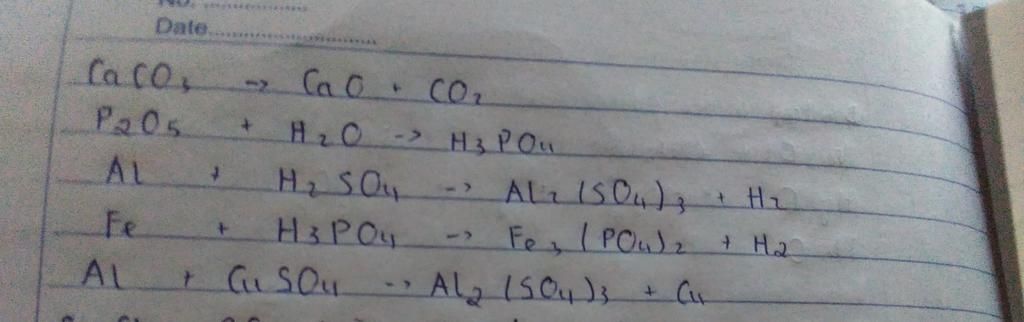 No. ..............
Date..............................
CaCO₃ -> CaO + CO₂
P₂O₅ + H₂O -> H₃PO₄
Al + H₂SO₄ -> Al₂(SO₄)₃ + H₂
Fe + H₃PO₄ -> Fe₃(PO₄)₂ + H₂
Al + CuSO₄ -> Al₂(SO₄)₃ + Cu